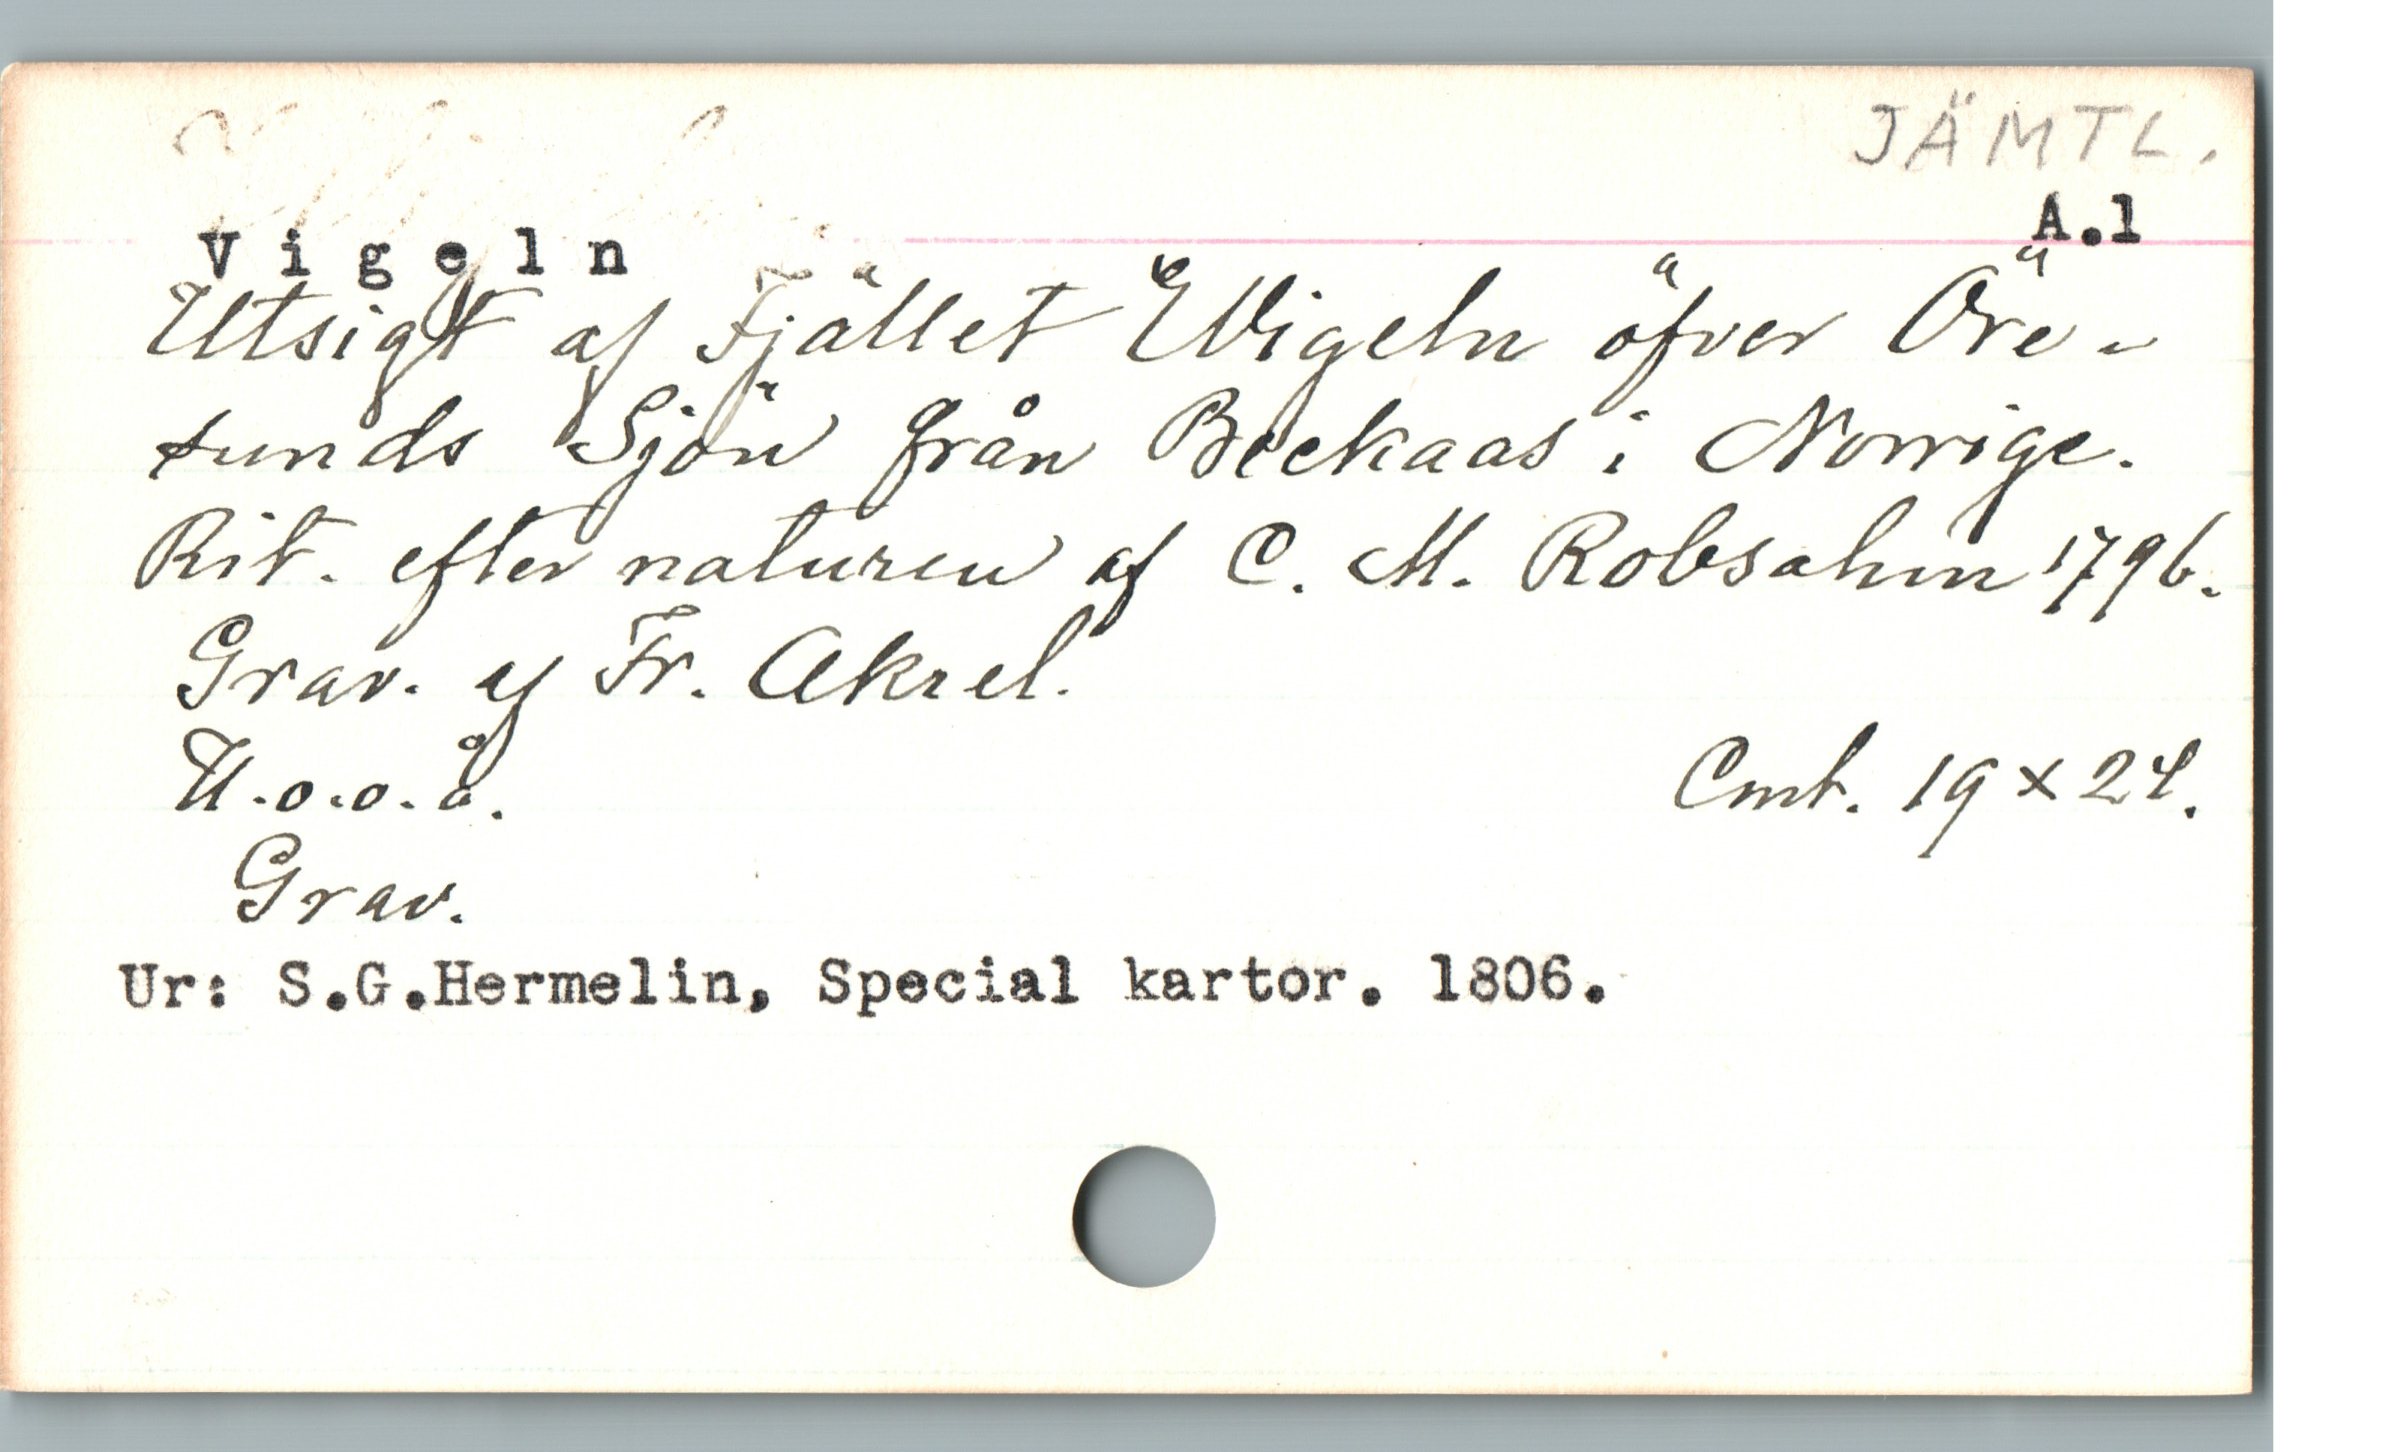 JÄMTL.
A.1
Vigeln
Utsigt af Fjället Wigeln öfver Öre-
sunds Sjön från Beckaas i Norrige.
Rit. efter naturen af C. M. Robsahm 1796.
Grav. af Fr. Akrel.
U.o.o.å. Cmt. 19 x 24.
Grav.
Ur: S.G.Hermelin, Special kartor. 1806.